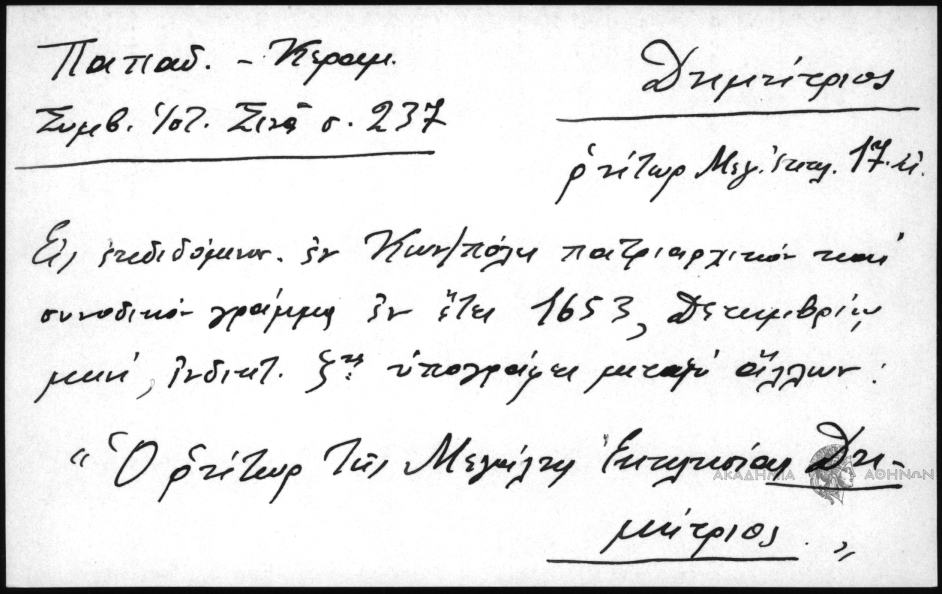 Παπαδ. - Κεραμ.
Συμβ. ἱστ. Σινᾶ σ. 237
Δημήτριος
ῥήτωρ Μεγ. Ἐκκλ. 17. αἰ.
Εἰς ἐκδιδόμενον ἐν Κων/πόλει πατριαρχικόν καί
συνοδικόν γράμμα ἐν ἔτει 1653, Δεκεμβρίῳ
μηνί, ἰνδικτ. ζης ὑπογράφει μεταξύ ἄλλων:
"Ὁ ῥήτωρ τῆς Μεγάλης Ἐκκλησίας Δη-
μήτριος."
ΑΚΑΔΗΜΙΑ ΑΘΗΝΩΝ